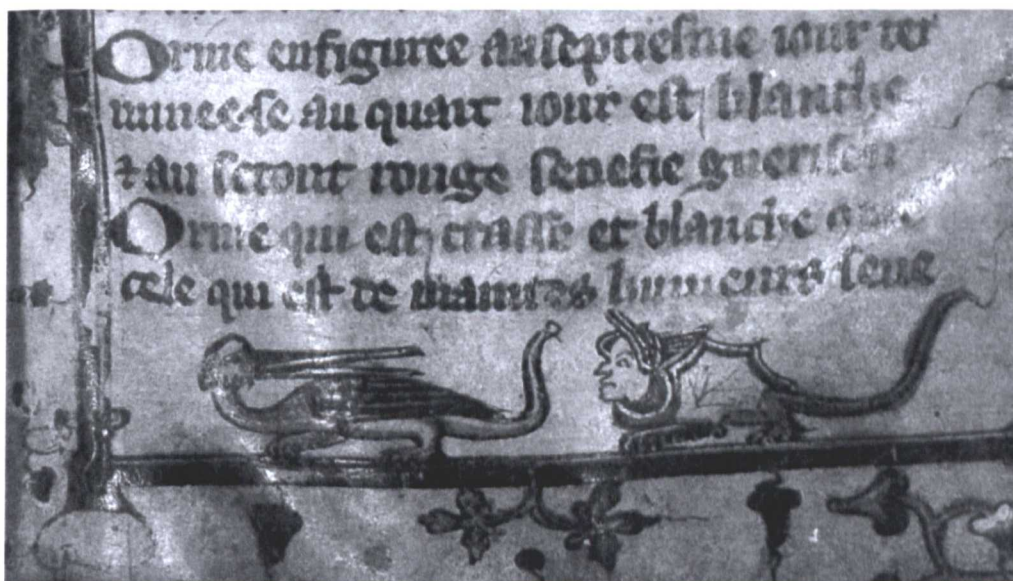 Orine enfiguree au septiesme iour ter
minee se au quart iour est blanche
⁊ au secont rouge senefie guerison
Orine qui est crasse et blanche
cele qui est de humeurs sene